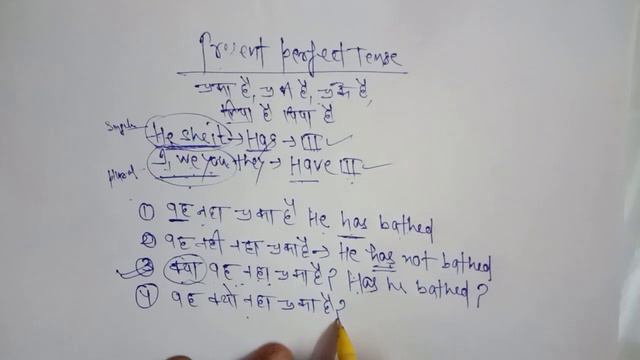 Present perfect Tense
चुका है, चुकी है, चुके है,
लिया है दिया है
Single He she it → Has → III
Plural I, we you they → Have III
① वह नहा चुका है He has bathed
② वह नहीं नहा चुका है → He has not bathed
③ क्या वह नहा चुका है? Has he bathed?
④ वह क्यों नहा चुका है?